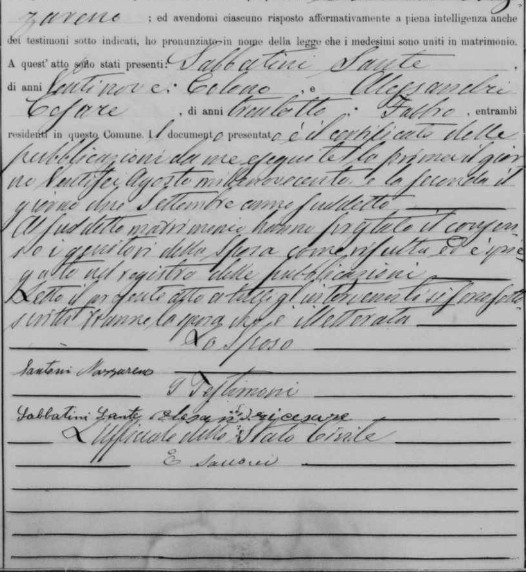 zareno ; ed avendomi ciascuno risposto affermativamente a piena intelligenza anche
dei testimoni sotto indicati, ho pronunziato in nome della legge che i medesimi sono uniti in matrimonio.
A quest'atto sono stati presenti: Sabbatini Sante
di anni Ventinove : Colono , e Alessandri
Cesare , di anni trentotto : Fabbro , entrambi
residenti in questo Comune. I l document o presentat o è il certificato delle
pubblicazioni da me eseguite la prima il gior
no Ventisei Agosto millenovecento e la seconda il
giorno due Settembre anno suddetto
Al suddetto matrimonio hanno prestato il consen
so i genitori della Sposa come risulta ed è spie
gato nel registro delle pubblicazioni
Letto il presente atto a tutti gl'intervenuti si sono sotto
scritti tranne la sposa che è illetterata
Lo Sposo
Santoni Nazzareno
I Testimoni
Sabbatini Sante
L'Ufficiale dello Stato Civile